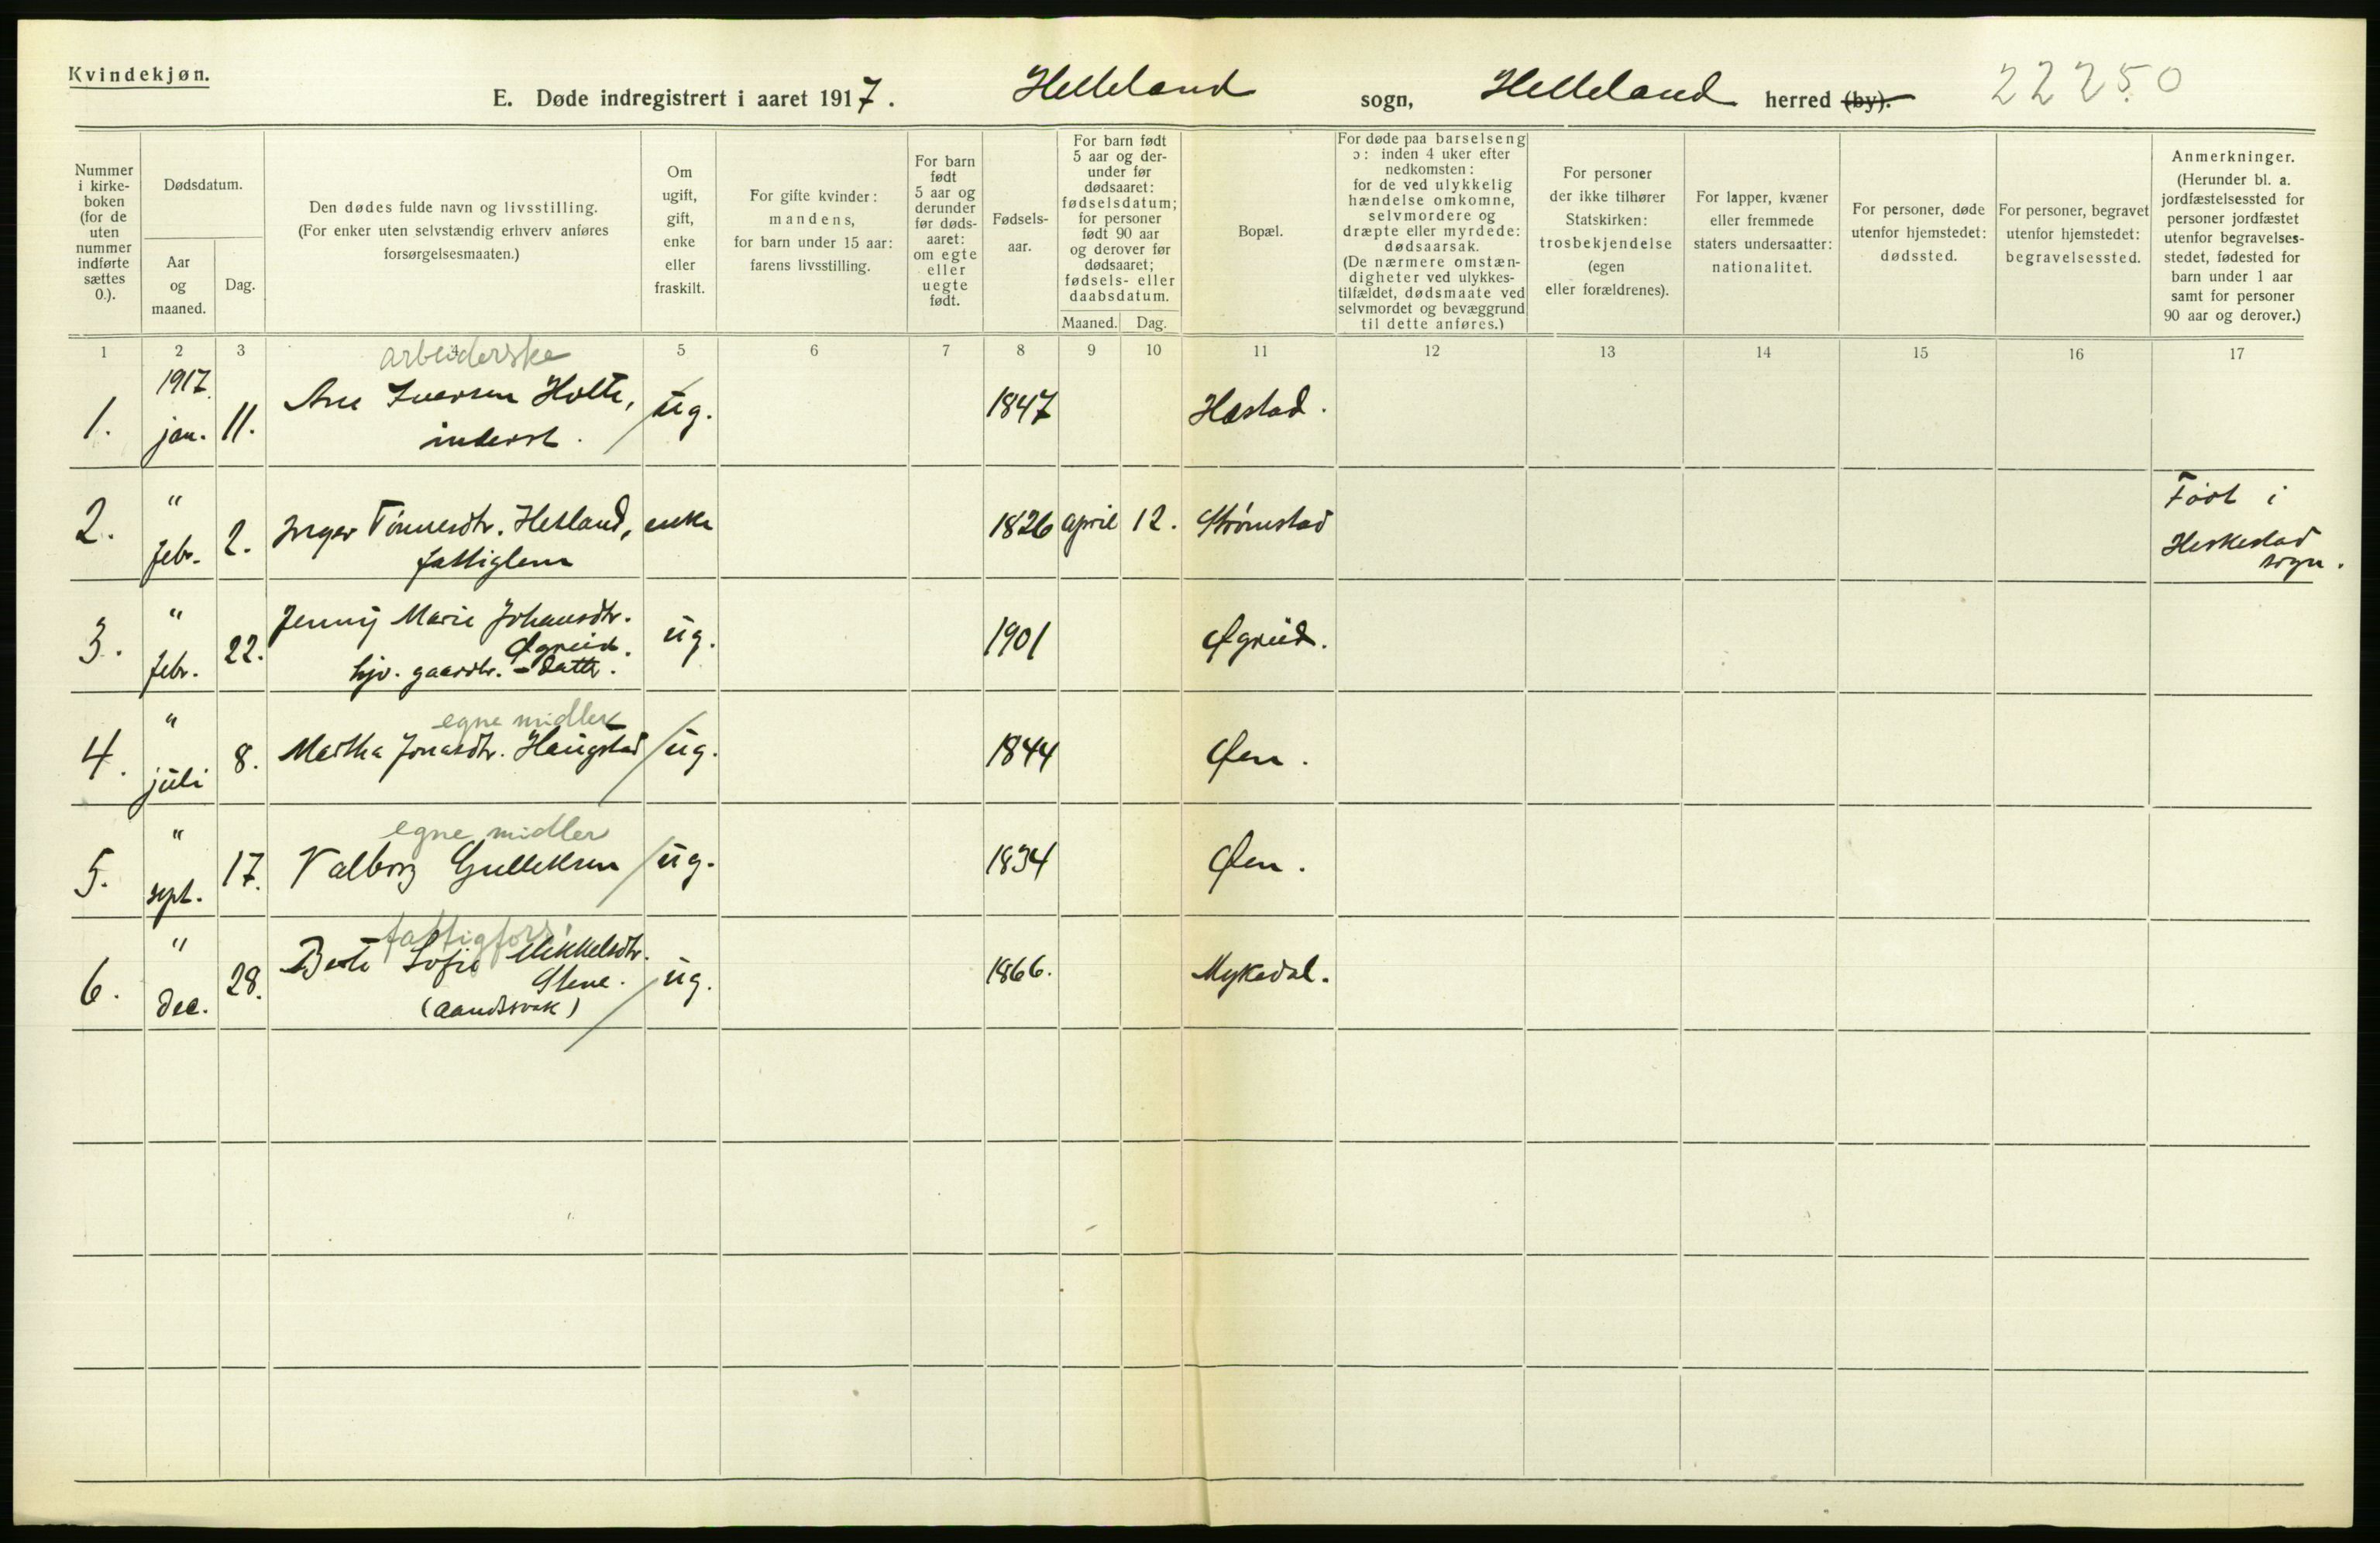 Kvindekjøn.
E. Døde indregistrert i aaret 1917. Helleland sogn, Helleland herred (by). 22250
Nummer i kirkeboken (for de uten nummer indførte sættes 0.).
Dødsdatum.
Aar og maaned.
Dag.
Den dødes fulde navn og livsstilling.
(For enker uten selvstændig erhverv anføres
forsørgelsesmaaten.)
Om ugift, gift, enke eller fraskilt.
For gifte kvinder: mandens, for barn under 15 aar: farens livsstilling.
For barn født 5 aar og derunder før dødsaaret: om egte eller uegte født.
Fødselsaar.
For barn født 5 aar og derunder før dødsaaret: fødselsdatum; for personer født 90 aar og derover før dødsaaret; fødsels- eller daabsdatum.
Maaned. Dag.
Bopæl.
For døde paa barselseng ɔ: inden 4 uker efter nedkomsten: for de ved ulykkelig hændelse omkomne, selvmordere og dræpte eller myrdede: dødsaarsak. (De nærmere omstændigheter ved ulykkestilfældet, dødsmaate ved selvmordet og bevæggrund til dette anføres.)
For personer der ikke tilhører Statskirken: trosbekjendelse (egen eller forældrenes).
For lapper, kvæner eller fremmede staters undersaatter: nationalitet.
For personer, døde utenfor hjemstedet: dødssted.
For personer, begravet utenfor hjemstedet: begravelsessted.
Anmerkninger. (Herunder bl. a. jordfæstelsessted for personer jordfæstet utenfor begravelsesstedet, fødested for barn under 1 aar samt for personer 90 aar og derover.)
1 2 3 4 5 6 7 8 9 10 11 12 13 14 15 16 17
arbeiderske
1. 1917. jan. 11. Ane Iversen Holte, inderst. ug. 1847 Hæstad.
2. " febr. 2. Inger Tønnesdtr. Hetland, fattiglem enke 1826 april 12. Strømstad Født i Heskestad sogn.
3. " febr. 22. Jenny Marie Johansdtr. Øgreid. hjv. gaardbr.-datter. ug. 1901 Øgreid.
egne midler
4. " juli 8. Martha Jonasdtr. Haugstad ug. 1844 Øen.
egne midler
5. " sept. 17. Valborg Gulleksen ug. 1834 Øen.
fattigfors.
6. " dec. 28. Berte Sofie Mikkelsdtr. Stene. (aandssvak) ug. 1866. Mykedal.